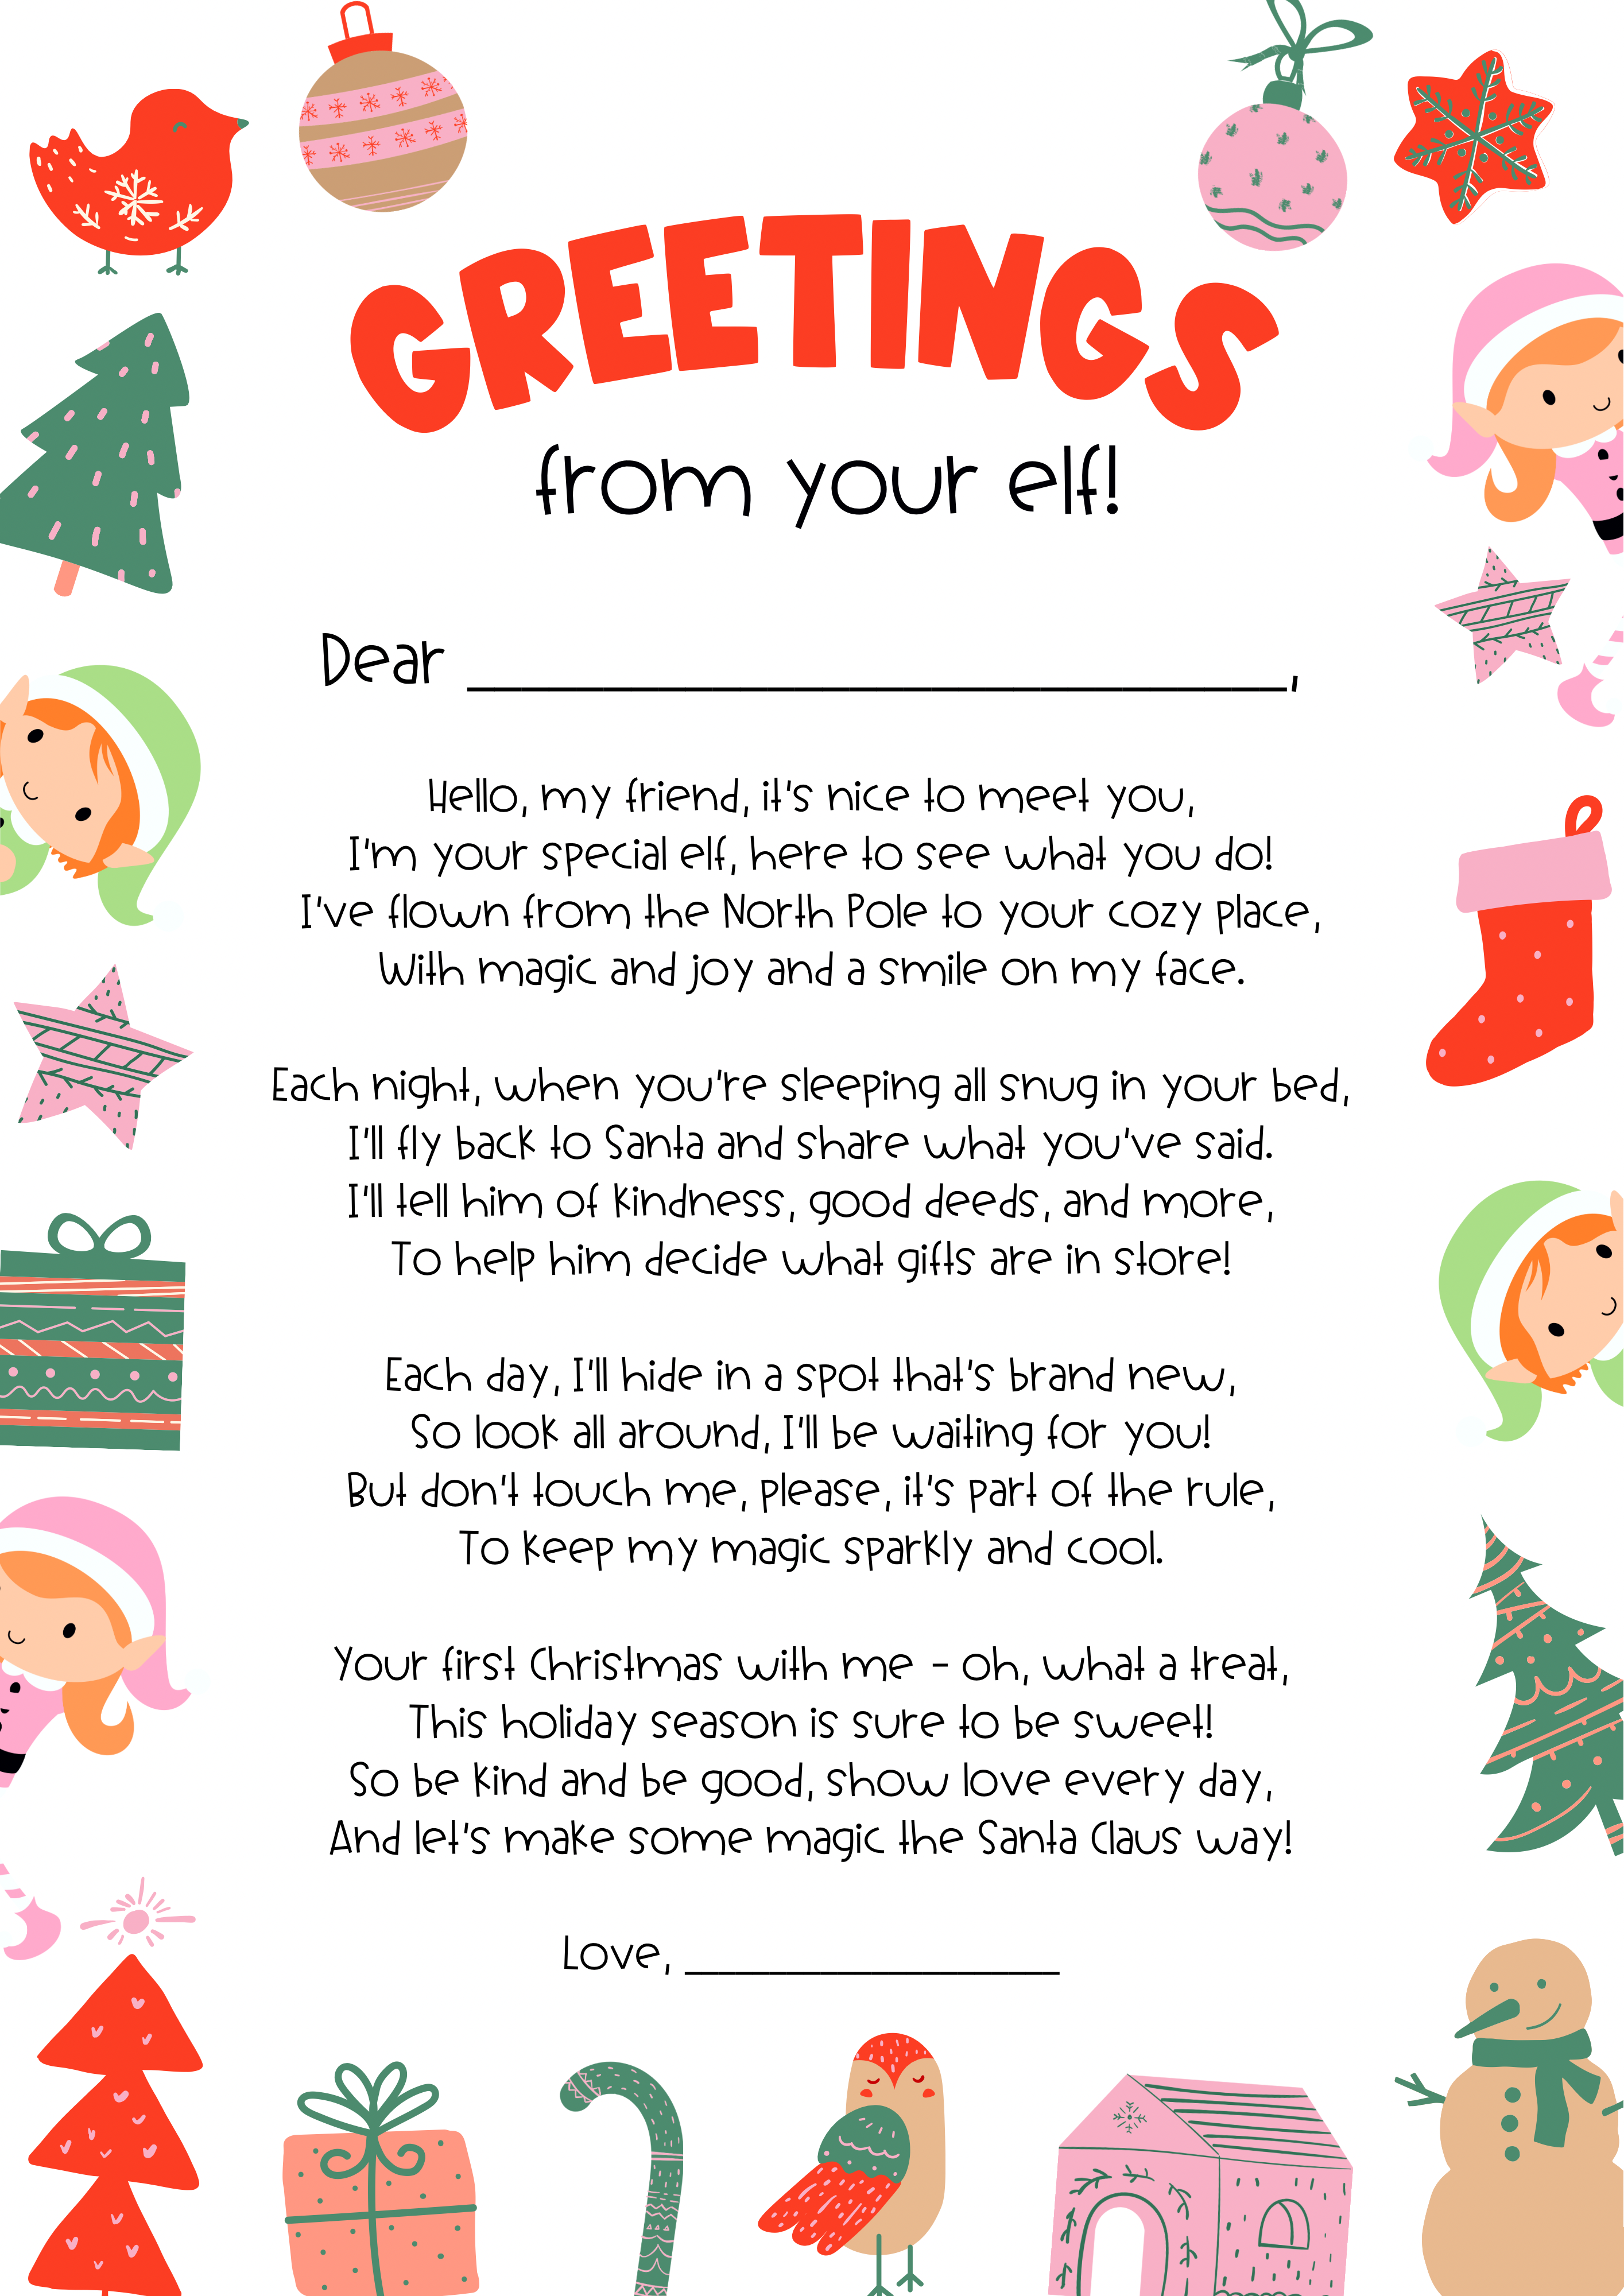 GREETINGS
from your elf!
Dear ______________________________,
Hello, my friend, it's nice to meet you,
I'm your special elf, here to see what you do!
I've flown from the North Pole to your cozy place,
With magic and joy and a smile on my face.
Each night, when you're sleeping all snug in your bed,
I'll fly back to Santa and share what you've said.
I'll tell him of kindness, good deeds, and more,
To help him decide what gifts are in store!
Each day, I'll hide in a spot that's brand new,
So look all around, I'll be waiting for you!
But don't touch me, please, it's part of the rule,
To keep my magic sparkly and cool.
Your first Christmas with me - oh, what a treat,
This holiday season is sure to be sweet!
So be kind and be good, show love every day,
And let's make some magic the Santa Claus way!
Love, ____________________